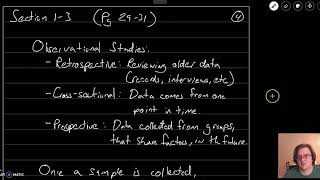 Section 1-3 (Pg 29-31) 4
Observational Studies:
- Retrospective: Reviewing older data
(records, interviews, etc.)
- Cross-sectional: Data comes from one
point in time.
- Prospective: Data collected from groups,
that share factors, in the future.
Once a sample is collected,